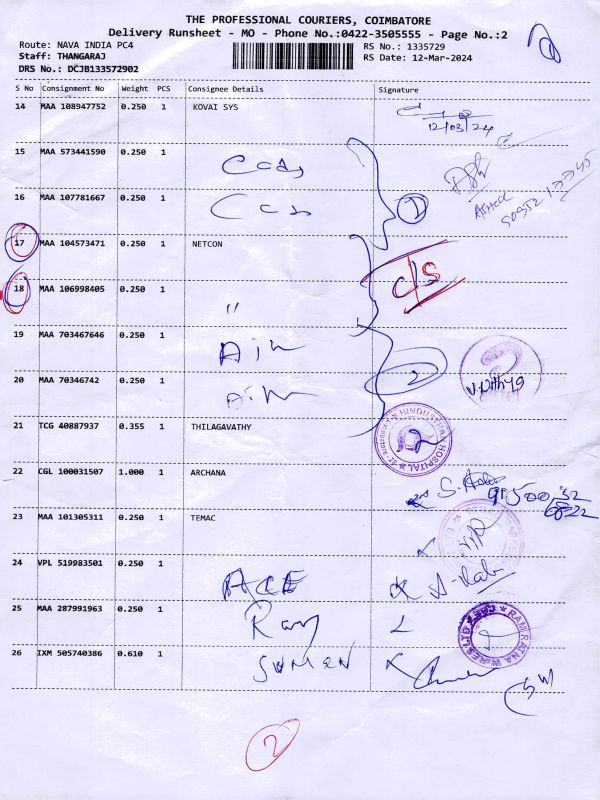 THE PROFESSIONAL COURIERS, COIMBATORE
Delivery Runsheet - MO - Phone No.:0422-3505555 - Page No.:2
Route: NAVA INDIA PC4
RS No.: 1335729
Staff: THANGARAJ
RS Date: 12-Mar-2024
DRS No.: DCJB133572902
S No Consignment No Weight PCS Consignee Details Signature
14 MAA 108947752 0.250 1 KOVAI SYS
12/03/24
15 MAA 573441590 0.250 1
16 MAA 107781667 0.250 1
1
17 MAA 104573471 0.250 1 NETCON
C/S
18 MAA 106998405 0.250 1 "
19 MAA 703467646 0.250 1
2
20 MAA 70346742 0.250 1
21 TCG 40887937 0.355 1 THILAGAVATHY
HINDUSTHAN HOSPITAL
22 CGL 100031507 1.000 1 ARCHANA
23 MAA 101305311 0.250 1 TEMAC
24 VPL 519983501 0.250 1 ACE
25 MAA 287991963 0.250 1
26 IXM 505740386 0.610 1 SUMAN
2